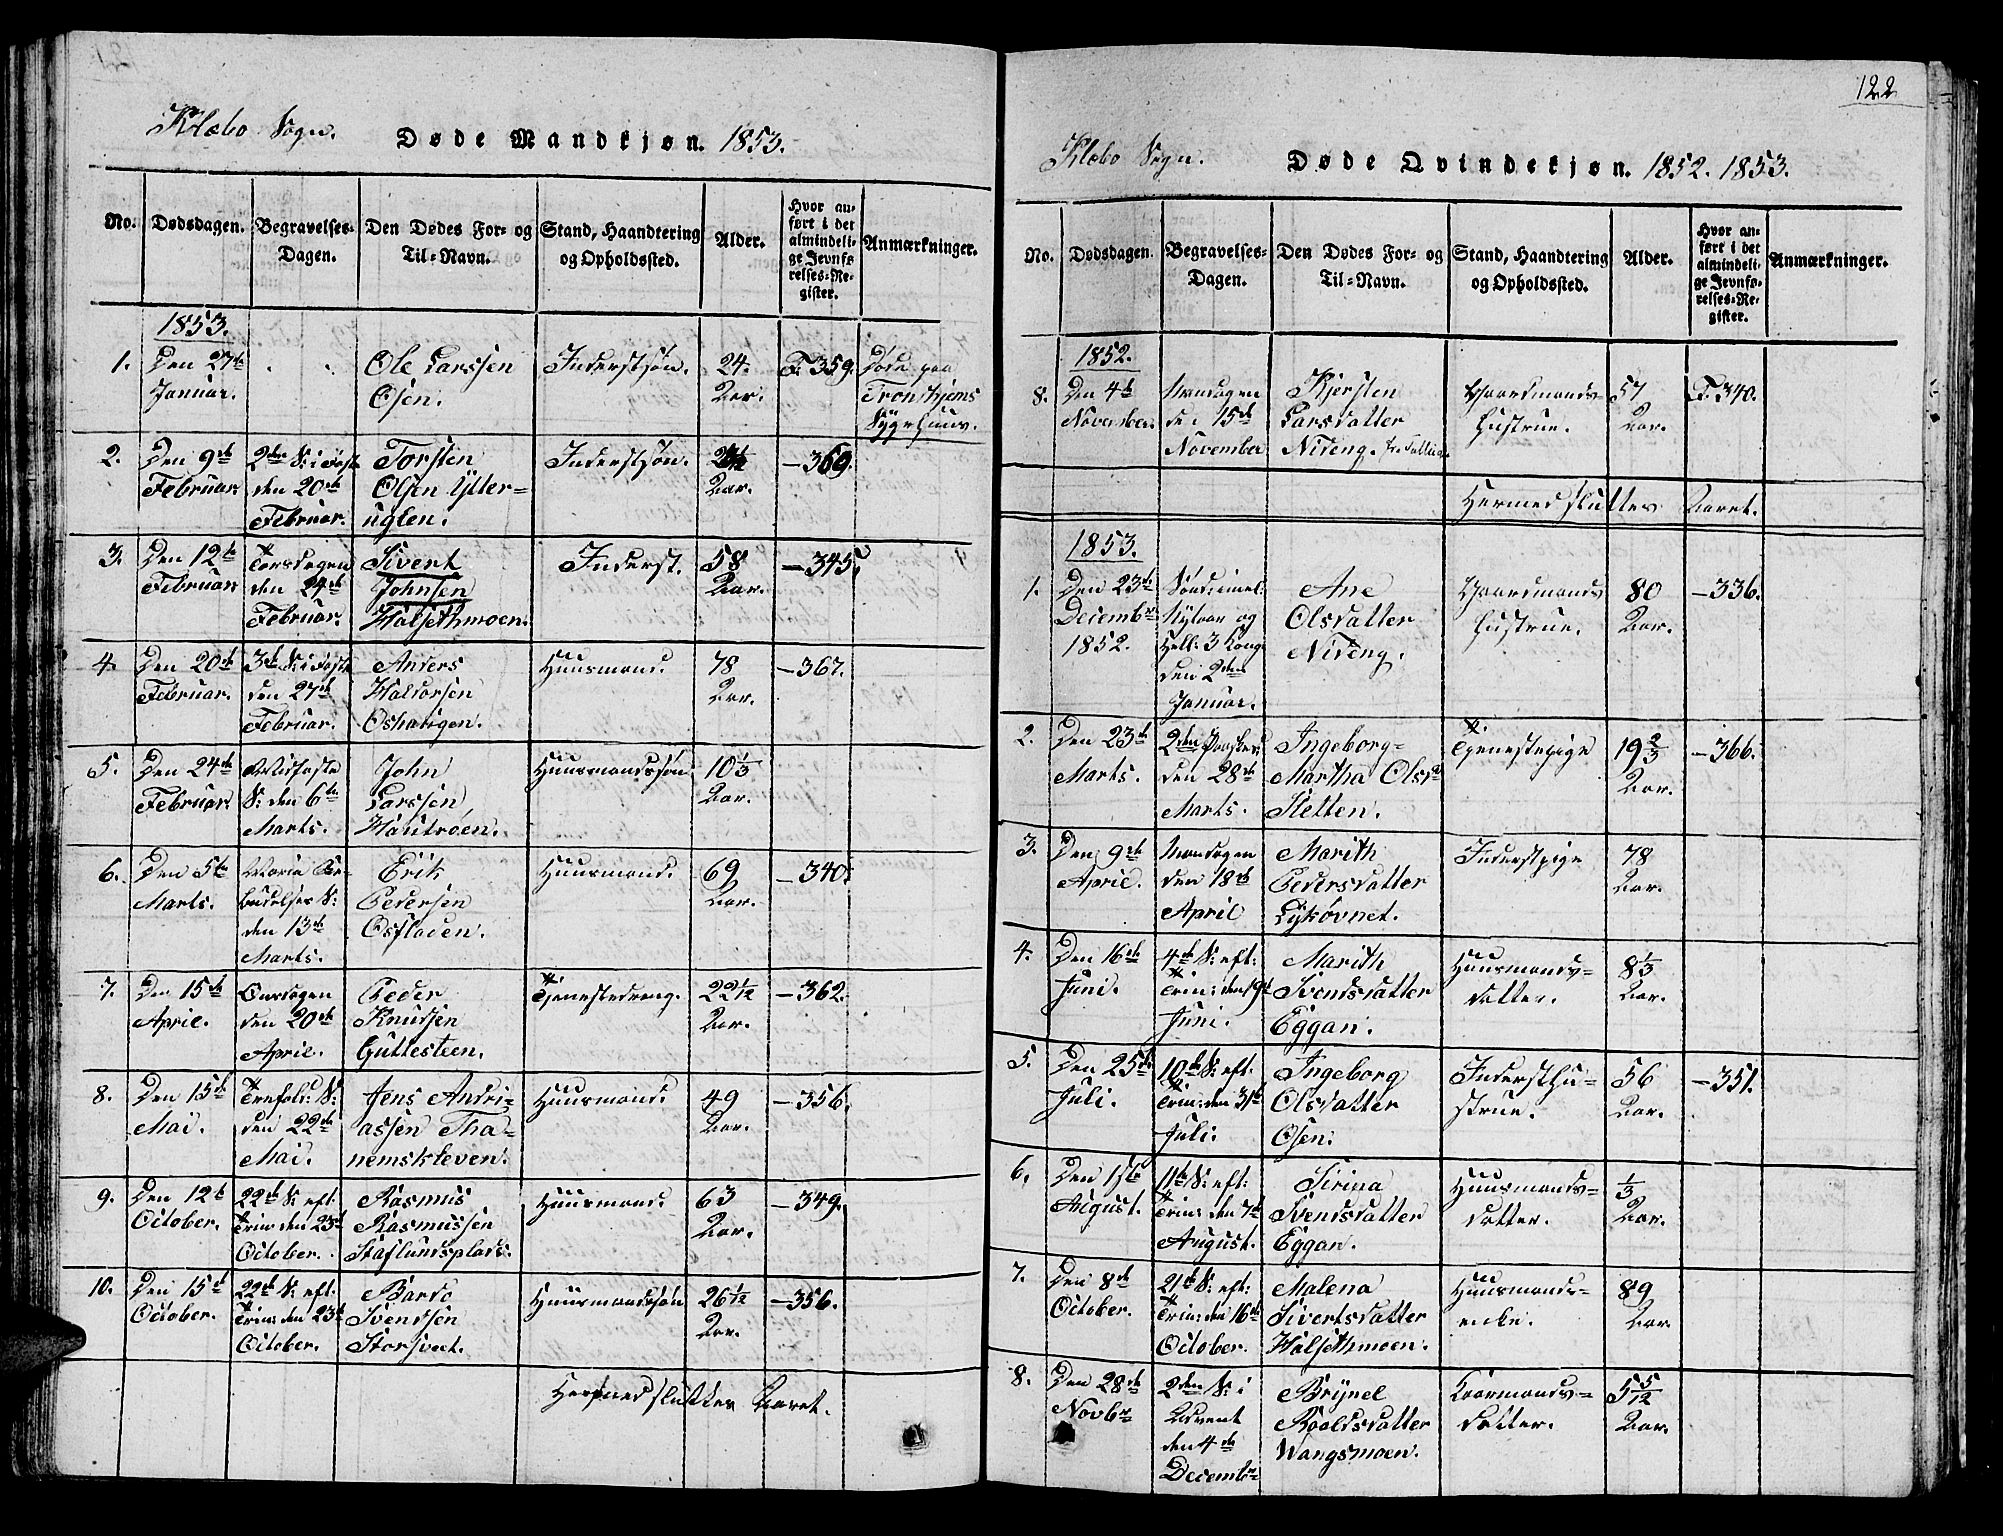 Klæbo Sogn. Døde Mandkjøn. 1853.
No. Dødsdagen. Begravelses-Dagen. Den Dødes For- og Til-Navn. Stand, Haandtering og Opholdssted. Alder. Hvor anført i det almindelige Jevnførelses-Register. Anmærkninger.
1853.
1. Den 27de Ole Larssen Inderstsøn. 24. F. 359. Døde paa
Januar. Osen. Aar. Tronhjems
Sygehuus.
2. Den 9de 2den S: i Faste Torsten Inderstsøn. — 369.
Februar. den 20de Olsen Ytter- Aar.
Februar. uglen.
3. Den 12te Torsdagen Sivert Inderst. 58 — 345.
Februar den 24de Johnsen Aar.
Februar. Halsethmoen.
4. Den 20de 3de S: i Faste Anders Huusmand. 78 — 367.
Februar. den 27de Haldorsen Aar.
Februar. Oshaugen.
5. Den 24de Midfaste John Huusmandssøn 10 1/3
Februar. S: den 6te Larssen Aar.
Marts. Haustrøen.
6. Den 5te Maria Be- Erik Huusmand. 69 — 340.
Marts. budelses S: Pedersen Aar.
den 13de Osfloden.
Marts.
7. Den 15de Onsdagen Peder Tjenestedreng. 22 1/2 — 362.
April. den 20de Knudsen Aar.
April. Guttesteen.
8. Den 15de Trefold: S: Jens Andri- Huusmand. 49 — 356.
Mai. den 22de assen Tha- Aar.
Mai. nemskleven.
9. Den 12te 22de S: eft: Rasmus Huusmand. 63 — 349.
October. Trin: den 23de Rasmussen Aar.
October. Staslundsplads.
10. Den 15de 22de S: eft: Bardo Huusmandssøn 26 1/12 — 356.
October. Trin: den 23de Svendsen Aar.
October. Storsvet.
Hermed sluttes Aaret.
122
Klæbo Sogn. Døde Qvindekjøn. 1852. 1853.
No. Dødsdagen. Begravelses-Dagen. Den Dødes For- og Til-Navn. Stand, Haandtering og Opholdssted. Alder. Hvor anført i det almindelige Jevnførelses-Register. Anmærkninger.
1852.
8. Den 4de Mandagen Kjersten Gaardmands- 57 F. 340.
November. den 15de Larsdatter Hustrue. Aar.
November Nideng.
Hermed sluttes Aaret.
1853.
1. Den 23de Sønd: imel: Ane Gaardmands 80 — 336.
Decembr Nytaar og Olsdatter Hustrue. Aar.
1852. Hell: 3 Kong. Nideng.
den 2den
Januar.
2. Den 23de 2den Paaskед: Ingeborg- Tjenestepige 19 2/3 — 366.
Marts. den 28de Martha Olsd Aar.
Marts. Sletten.
3. Den 9de Mandagen Marith Inderstpige 78
April. den 18de Pedersdatter Aar.
April Lykøvnet.
4. Den 16de 4de S: eft: Marith Huusmands- 8 1/3
Juni. Trin: den 19de Svendsdatter datter. Aar.
Juni. Eggan.
5. Den 25de 10de S: eft: Ingeborg Indersthu- 56 — 351.
Juli. Trin: den 31te Olsdatter strue. Aar.
Juli. Osen.
6. Den 1ste 11te S: eft: Sirina Huusmands- 1/3
August. Trin: den 7de Svendsdatter datter. Aar.
August. Eggan.
7. Den 8de 21de S: eft: Malena Huusmands- 89
October. Trin: den 16de Sivertsdatter enke. Aar
October. Halsethmoen.
8. Den 28de 2den S: i Brynel Gaardmands- 5 5/12
Novbr Advent Roaldsdatter datter. Aar.
den 4de Wangsmoen.
Decembr